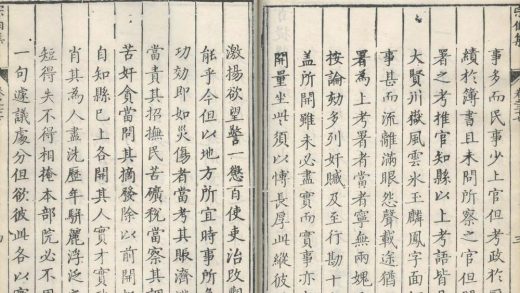 事多而民事少上官但考政於
績於簿書且未問所察之官但
署之考推官知縣以上考語皆
大賢川嶽風雲氷玉麟鳳字面
事甚而流離滿眼怨聲載途猶
署為上考署者當者寧無兩媿
按論劾多列奸贓及至行勘十
蓋所聞雖未必盡實而實事亦
開量坐些須以愽長厚此縱彼
激揚欲望警一懲百使吏治改
能乎今但以地方所宜時事所
功効即如災傷者當考其賑濟
當責其招撫民苦礦稅當察其
苦奸貪當問其摘發除以前開
自知縣已上各開其人實才實
肖其為人盡洗歷年駢麗浮泛
短得失不得相掩本部院必不
一句遽議處分但欲彼此各以
宗伯集